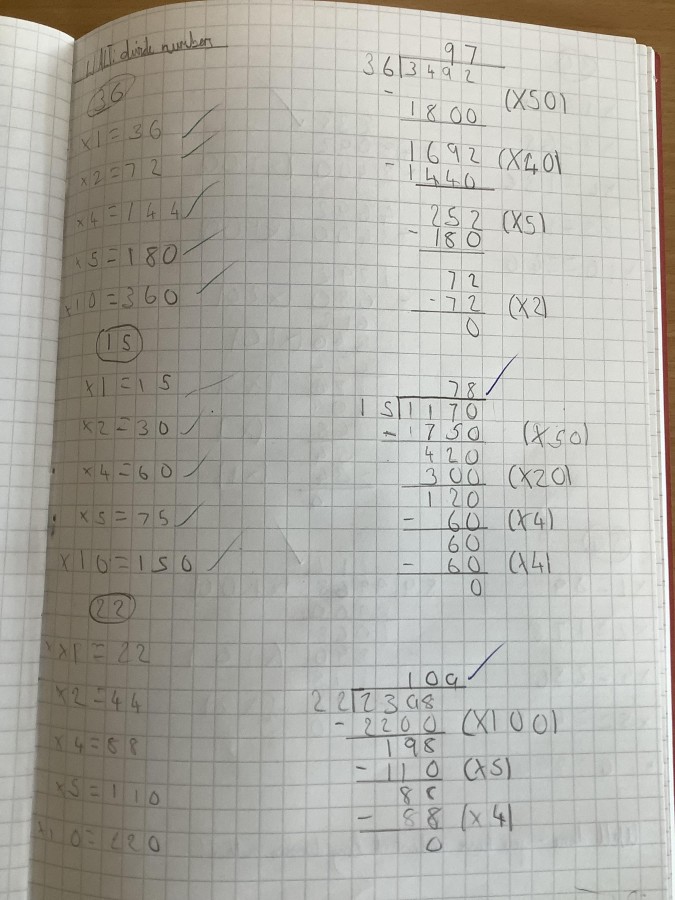 WALT: divide numbers
36
x1 = 36
x2 = 72
x4 = 144
x5 = 180
x10 = 360
97
36 3492
- 1800 (x50)
1692
- 1440 (x40)
252
- 180 (x5)
72
- 72 (x2)
0
15
x1 = 15
x2 = 30
x4 = 60
x5 = 75
x10 = 150
78
15 1170
- 750 (x50)
420
300 (x20)
120
- 60 (x4)
60
- 60 (x4)
0
22
x1 = 22
x2 = 44
x4 = 88
x5 = 110
x10 = 220
109
22 2398
- 2200 (x100)
198
- 110 (x5)
88
- 88 (x4)
0